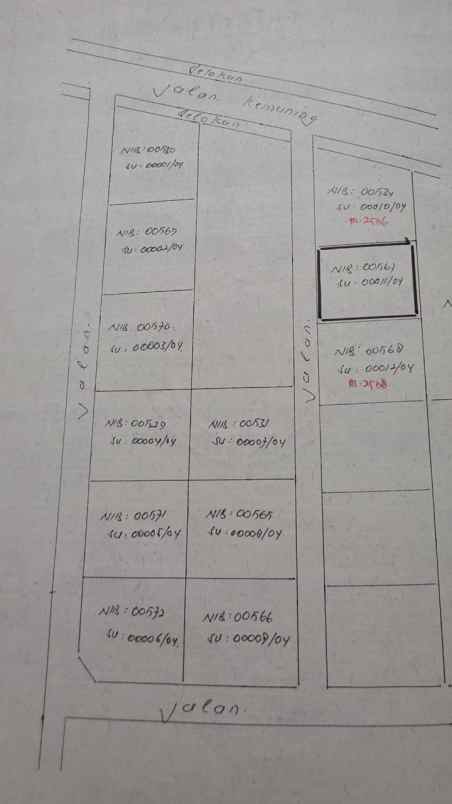 Selokan
Jalan Kemuning
Selokan
NIB: 00530
SU: 00001/04
NIB: 00569
SU: 00002/04
NIB: 00570
SU: 00003/04
NIB: 00529
SU: 00004/04
NIB: 00571
SU: 00005/04
NIB: 00572
SU: 00006/04
NIB: 00531
SU: 00007/04
NIB: 00565
SU: 00008/04
NIB: 00566
SU: 00009/04
SU: 00010/04
NIB: 00567
SU: 00011/04
NIB: 00568
SU: 00012/04
M. 2568
Jalan.
Jalan.
Jalan.